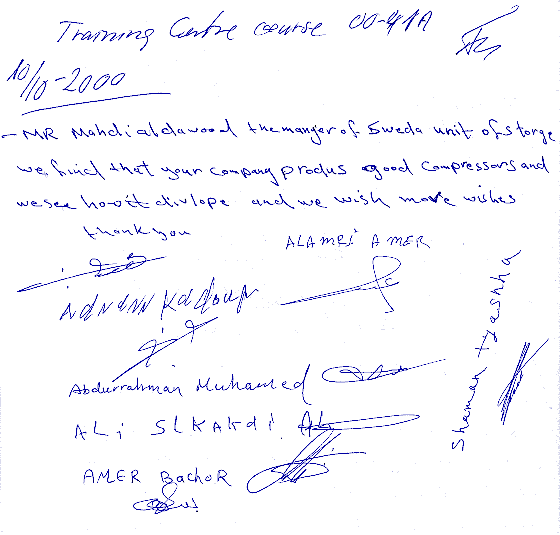 Training Centre course 00-41A
10/10-2000
- MR Mahdi aldawood the manger of Sweda unit of storge
we find that your company produs good compressors and
we see how it divlope and we wish more wishes
thank you
ALAMRi AMER
Adnann Kaddour
Abdurrahman Muhamed
ALi SLKAKdi
AMER BachoR
Shaman